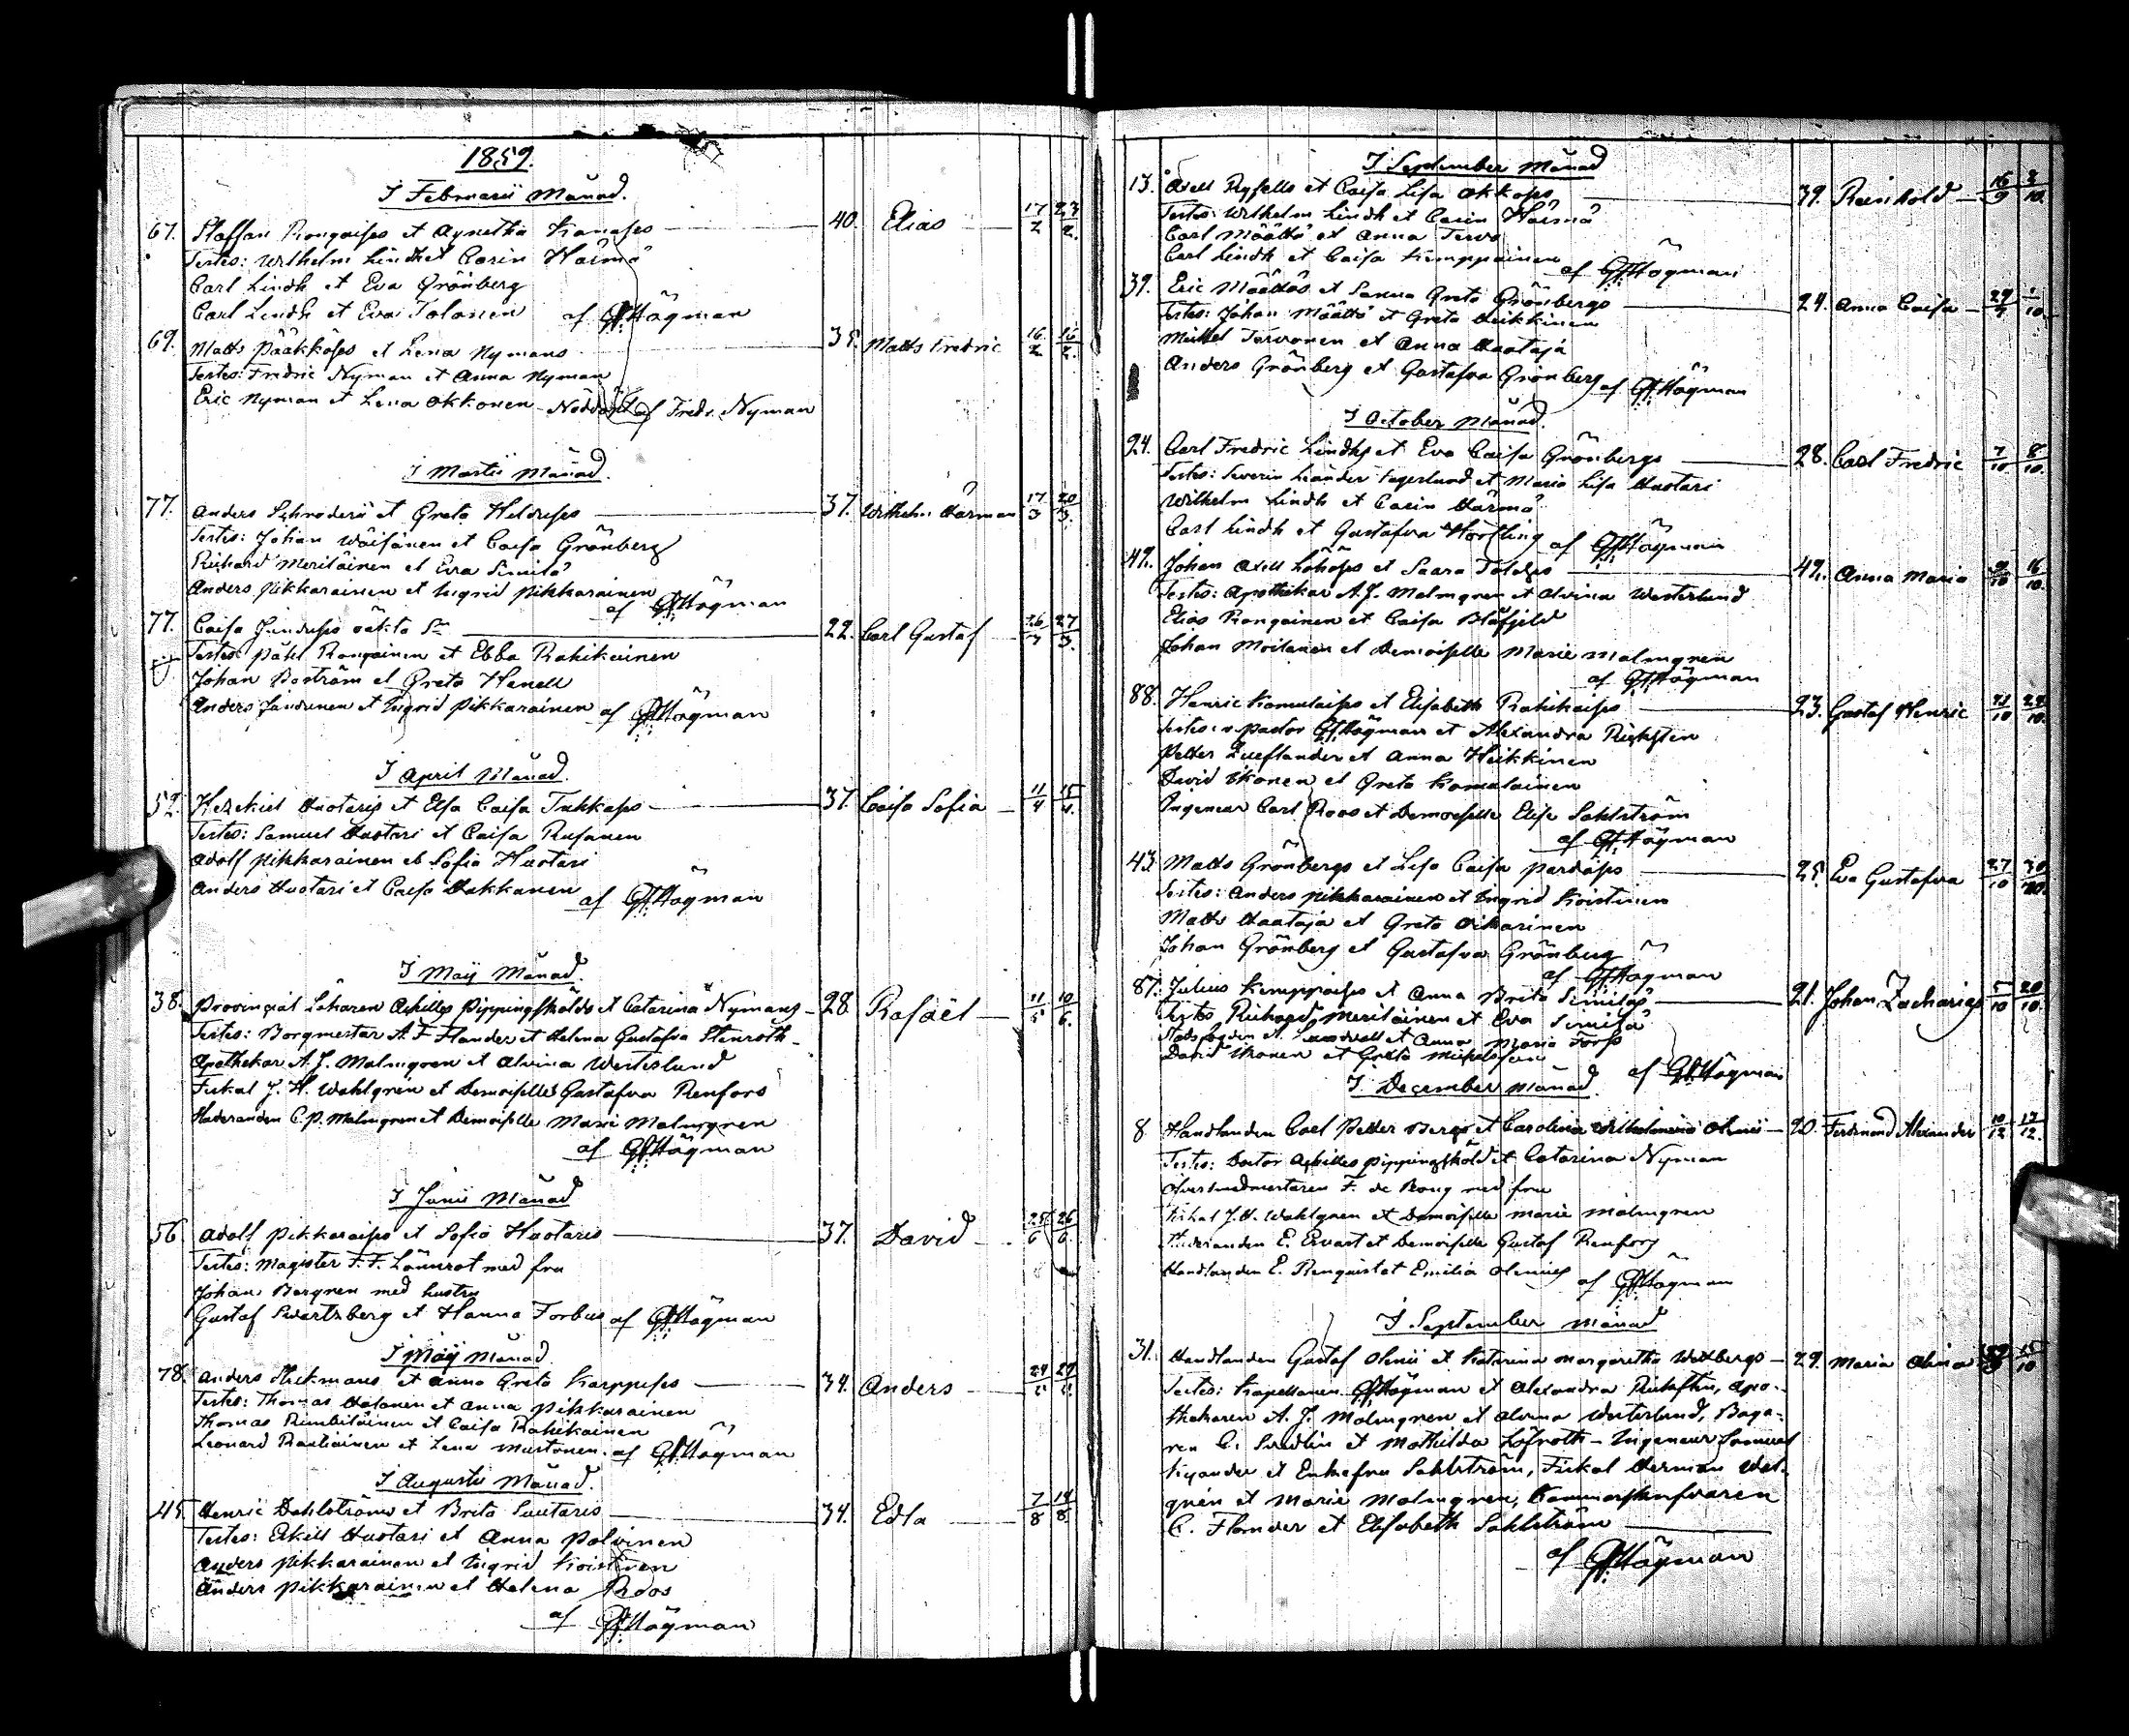 1859.
I Februarii Månad.
67. Staffan Rongaises et Agnetha Kanases 40. Elias 17/2 23/2.
Testes: Wilhelm Lindh et Carin Härmä
Carl Lindh et Eva Grönberg
Carl Lindh et Eva Tolonen af GFHögman
69. Matts Pääkköses et Lena Nymans 35. Matts Fredric 16/2 16/2.
Testes: Fredric Nyman et Anna Nyman
Eric Nyman et Lena Okkonen Nöddöpt af Fredr. Nyman
I Martii Månad.
77. Anders Schroderii et Greta 37. Wilhelm Herman 17/3 20/3.
Testes: Johan Wäisänen et Caisa Grönberg
Richard Meriläinen et Eva Similä
Anders Pikkarainen et Ingrid Pikkarainen
af GFHögman
77. Caisa oäkta Sn 22. Carl Gustaf 26/3 27/3.
Testes: Påhl Rongainen et Ebba Rahikainen
Johan Boström et Greta Henell
Anders Jundunen et Ingrid Pikkarainen af GFHögman
I April Månad.
52. Hezekiel Huotaris et Elsa Caisa Tuhkases 37. Caisa Sofia 11/4 15/4.
Testes: Samuel Huotari et Caisa Rusanen
Adolf Pikkarainen et Sofia Huotari
Anders Huotari et Caisa Hakkanen af GFHögman
I Maij Månad.
38. Provincial Läkaren Achilles Pippingskölds et Catarina Nymans 28 Rafaël 11/5 10/6.
Testes: Borgmestar A. F. Flander et Helena Gustafva Stenroth
Apothekar A. J. Malmgren et Alvina Westerlund
Fiskal J. H. Wahlgren et Demoiselle Gustafva Renfors
Studeranden C. P. Malmgren et Demoiselle Marie Malmgren
af GFHögman
I Junii Månad
56. Adolf Pikkaraises et Sofia Huotaris 37. David 25/6 26/6.
Testes: Magister F. F. Lönnrot med fru
Johan Bergren med hustru
Gustaf Swartzberg et Hanna Forbus af GFHögman
I Maij Månad
78. Anders Hickmans et Anna Greta Karppises 34. Anders 24/5 29/5.
Testes: Thomas Halonen et Anna Pikkarainen
Thomas Rimbiläinen et Caisa Rahikainen
Leonard Rautiainen et Lena Mustonen. af GFHögman
I Augustii Månad.
45. Henric Dahlströms et Brita Suutaris 34. Edla 7/8 14/8.
Testes: Eskill Huotari et Anna Polvinen
Anders Pikkarainen et Ingrid Koistinen
Anders Pikkarainen et Helena Roos
af GFHögman
I September Månad
13. Axell Rysells et Caisa Lisa Okkoses 39. Reinhold 16/9 2/10.
Testes: Wilhelm Lindh et Carin Härmä
Carl Määttä et Anna Tervo
Carl Lindh et Caisa Kemppainen
af GFHögman
39. Eric Määttäs et Sanna Greta Grönbergs 24. Anna Caisa 29/9 1/10.
Testes: Johan Määttä et Greta Heikkinen
Mickel Tervonen et Anna Haataja
Anders Grönberg et Gustafva Grönberg af GFHögman
I October Månad.
24. Carl Fredric Lindhs et Eva Caisa Grönbergs 28. Carl Fredric 7/10 8/10.
Testes: Severin Leander Fagerlund et Maria Lisa Huotari
Wilhelm Lindh et Carin Härmä
Carl Lindh et Gustafva Hörtling af GFHögman
42. Johan Axell et Saara 42. Anna Maria 9/10 16/10.
Testes: Apothekar A. J. Malmgren et Alvina Westerlund
Elias Rongainen et Caisa Blåfjeld
Johan Moilanen et Demoiselle Marie Malmgren
af GFHögman
88. Henric Komulaises et Elisabeth Rahikaises 23. Gustaf Henric 23/10 24/10.
Testes: v. Pastor GFHögman et Alexandra Rickstin
Petter et Anna Heikkinen
David Ikonen et Greta Komulainen
Ingeneur Carl Roos et Demoiselle Elise Sahlström
af GFHögman
43. Matts Grönbergs et Lisa Caisa Partases 25. Eva Gustafva 27/10 30/10.
Testes: Anders Pikkarainen et Ingrid Koistinen
Matts Haataja et Greta Oikarinen
Johan Grönberg et Gustafva Grönberg
af GFHögman
87. Julius Kemppaises et Anna Brita Similäs 21. Johan Zacharias 5/10 20/10.
Testes Richard Meriläinen et Eva Similä
Stadsfogden A. et Anna Maria Forss
David Ikonen et Greta Mickelsson
af GFHögman
I December Månad.
8 Handlanden Carl Petter Bergs et Carolina Wilhelmina Olenii 20. Ferdinand Alexander 10/12 17/12.
Testes: Doctor Achilles Pippingsköld et Catarina Nyman
Öfverstmästaren F. de Bong med fru
Fiskal J. H. Wahlgren et Demoiselle Marie Malmgren
Studeranden E. Ervast et Demoiselle Gustaf Renfors
Handlanden E. Renquist et Emilia Olenius af GFHögman
I September Månad
31. Handlanden Gustaf Olenii et Katarina Margaretha Wettbergs 29. Maria Alina 15/10
Testes: Kapellanen GFHögman et Alexandra Rickstin, Apo-
thekaren A. J. Malmgren et Alvina Westerlund, Baga-
ren C. Sundlin et Mathilda Löfroth - Ingeneur Samuel
Kyander et Enkefru Sahlström, Fiskal Herman Wal-
grén et Marie Malmgren, Kammarskrifvaren
C. Flander et Elisabeth Sahlström
af GFHögman